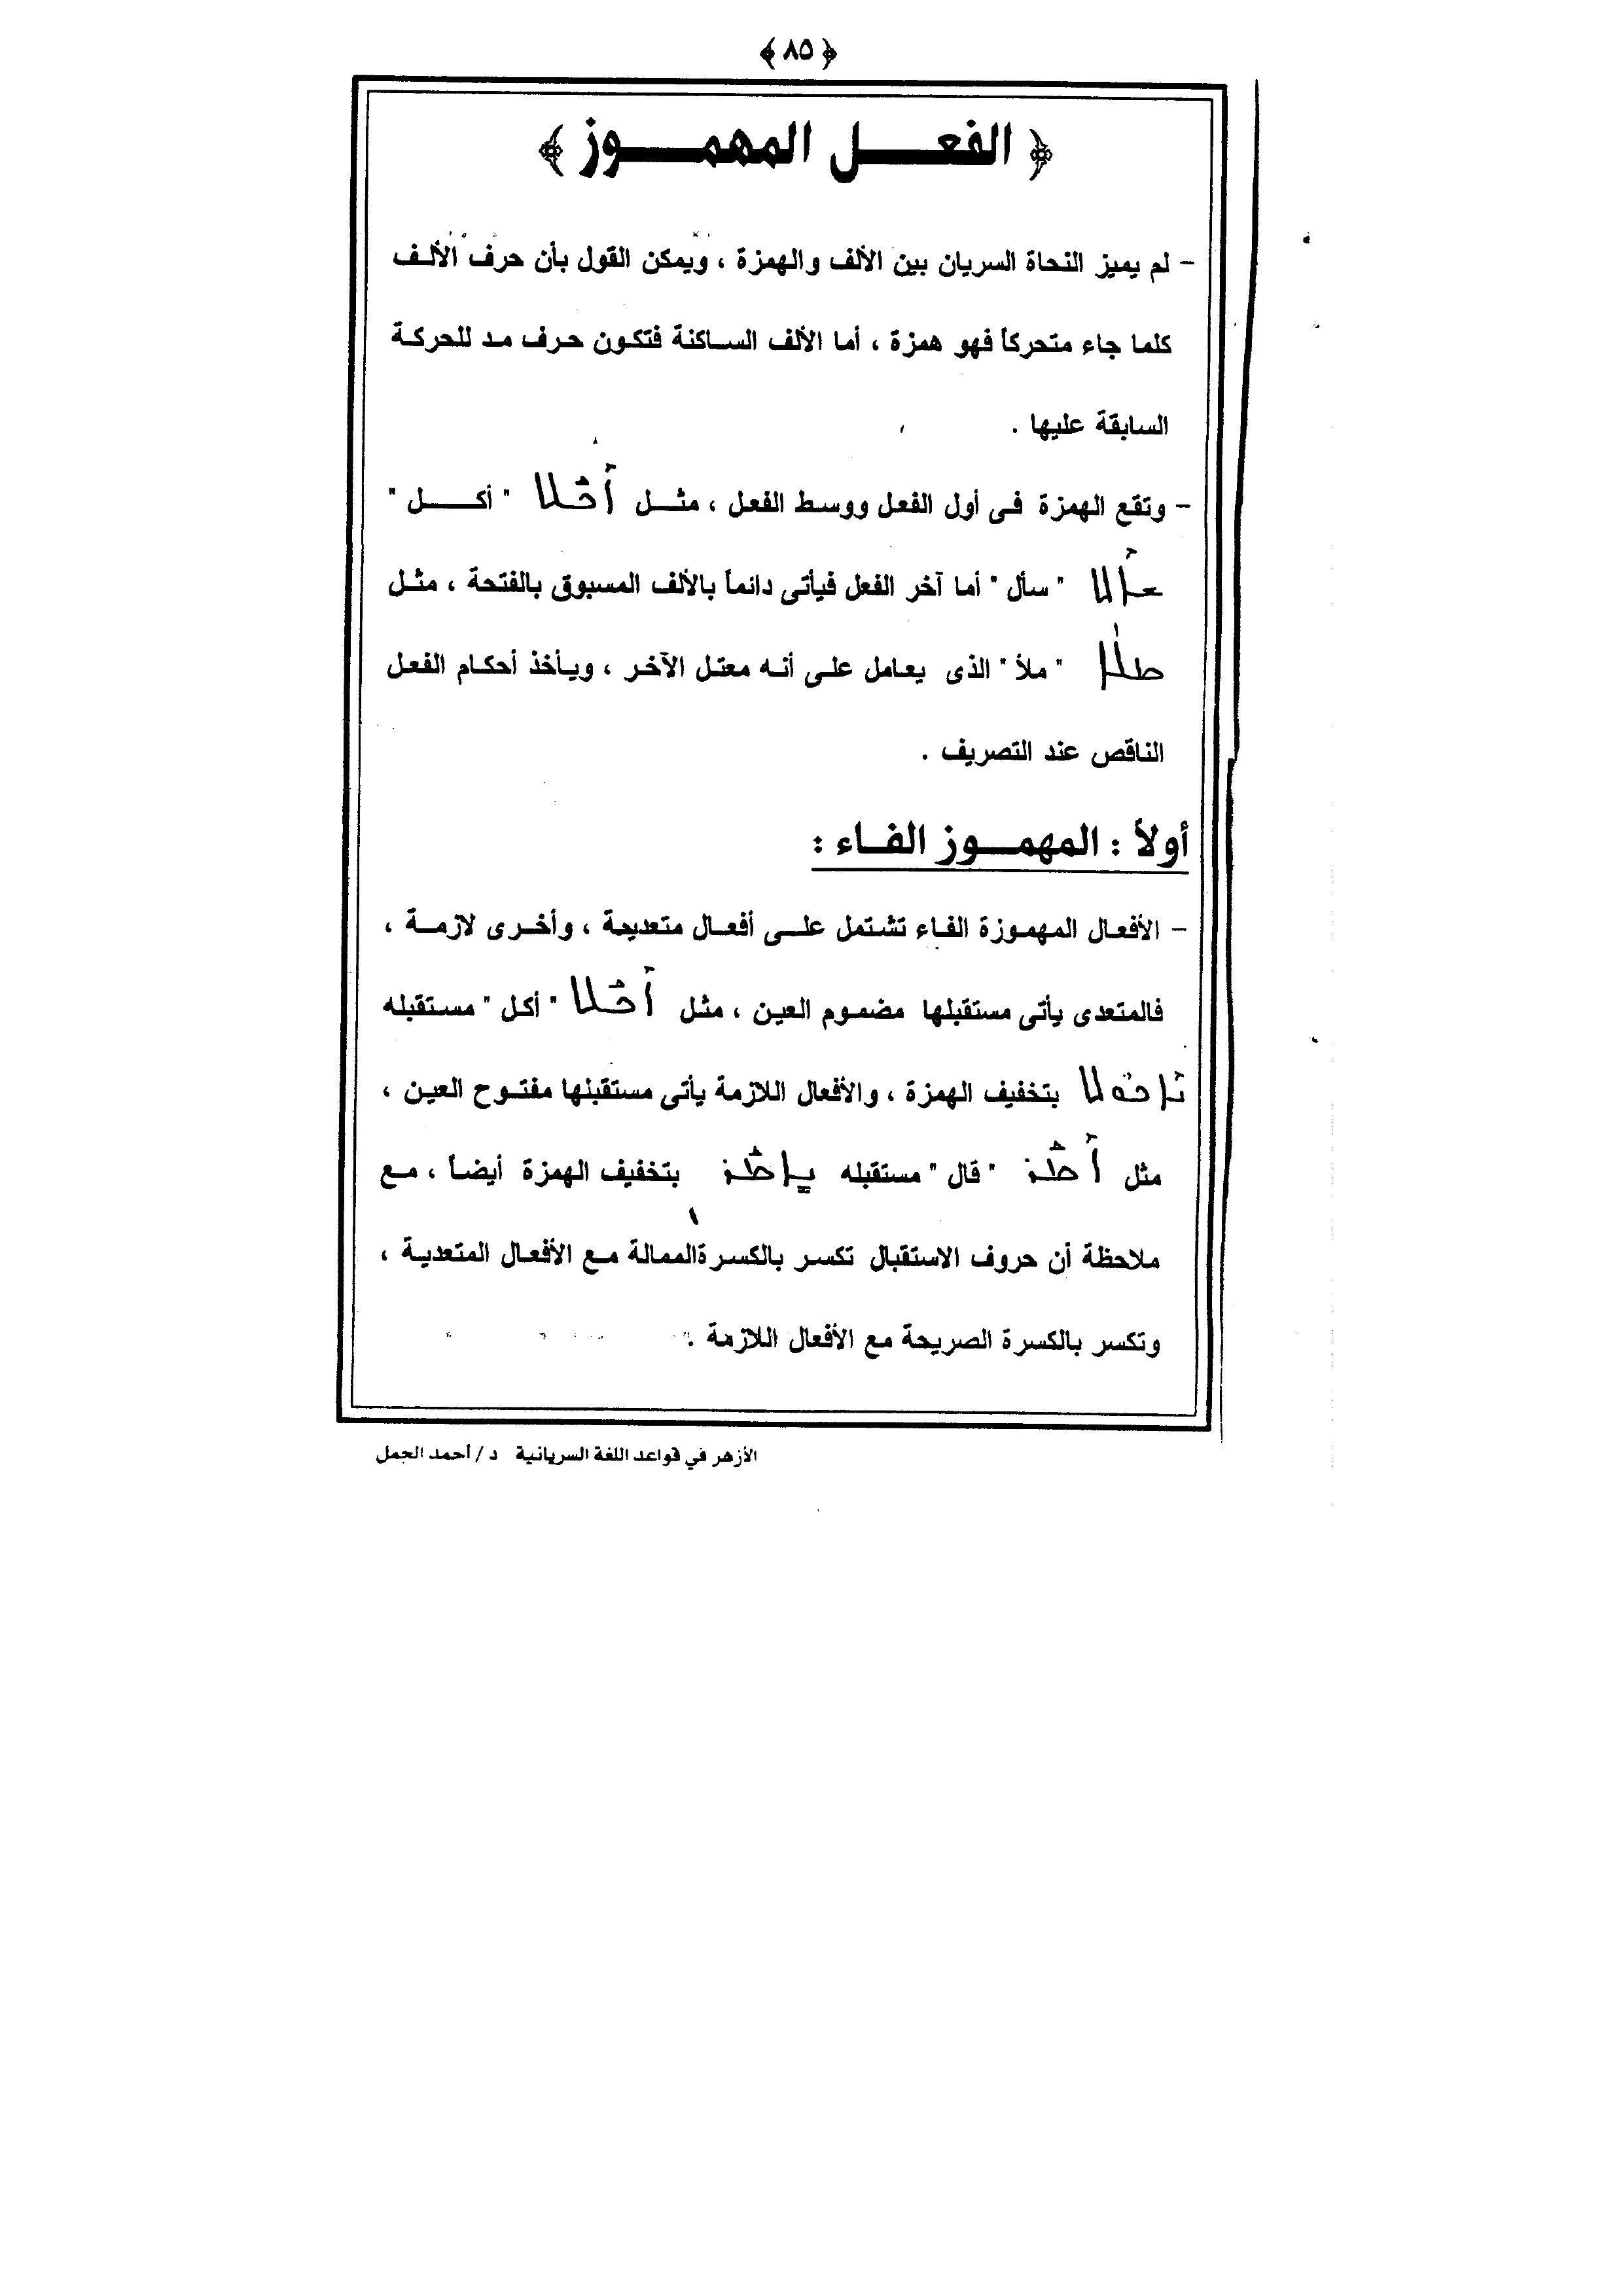 ﴿ ٨٥ ﴾
﴿ الفعــــل المهمــــوز ﴾
– لم يميز النحاة السريان بين الألف والهمزة ، ويمكن القول بأن حرف الألف
كلما جاء متحركاً فهو همزة ، أما الألف الساكنة فتكون حرف مد للحركة
السابقة عليها .
– وتقع الهمزة فى أول الفعل ووسط الفعل ، مثل " أكل "
" سأل " أما آخر الفعل فيأتى دائماً بالألف المسبوق بالفتحة ، مثل
" ملأ " الذى يعامل على أنه معتل الآخر ، ويأخذ أحكام الفعل
الناقص عند التصريف .
أولاً : المهموز الفاء :
– الأفعال المهموزة الفاء تشتمل على أفعال متعدية ، وأخرى لازمة ،
فالمتعدى يأتى مستقبلها مضموم العين ، مثل " أكل " مستقبله
بتخفيف الهمزة ، والأفعال اللازمة يأتى مستقبلها مفتوح العين ،
مثل " قال " مستقبله بتخفيف الهمزة أيضاً ، مع
ملاحظة أن حروف الاستقبال تكسر بالكسرةالممالة مع الأفعال المتعدية ،
وتكسر بالكسرة الصريحة مع الأفعال اللازمة .
الأزهر في قواعد اللغة السريانية د/ أحمد الجمل